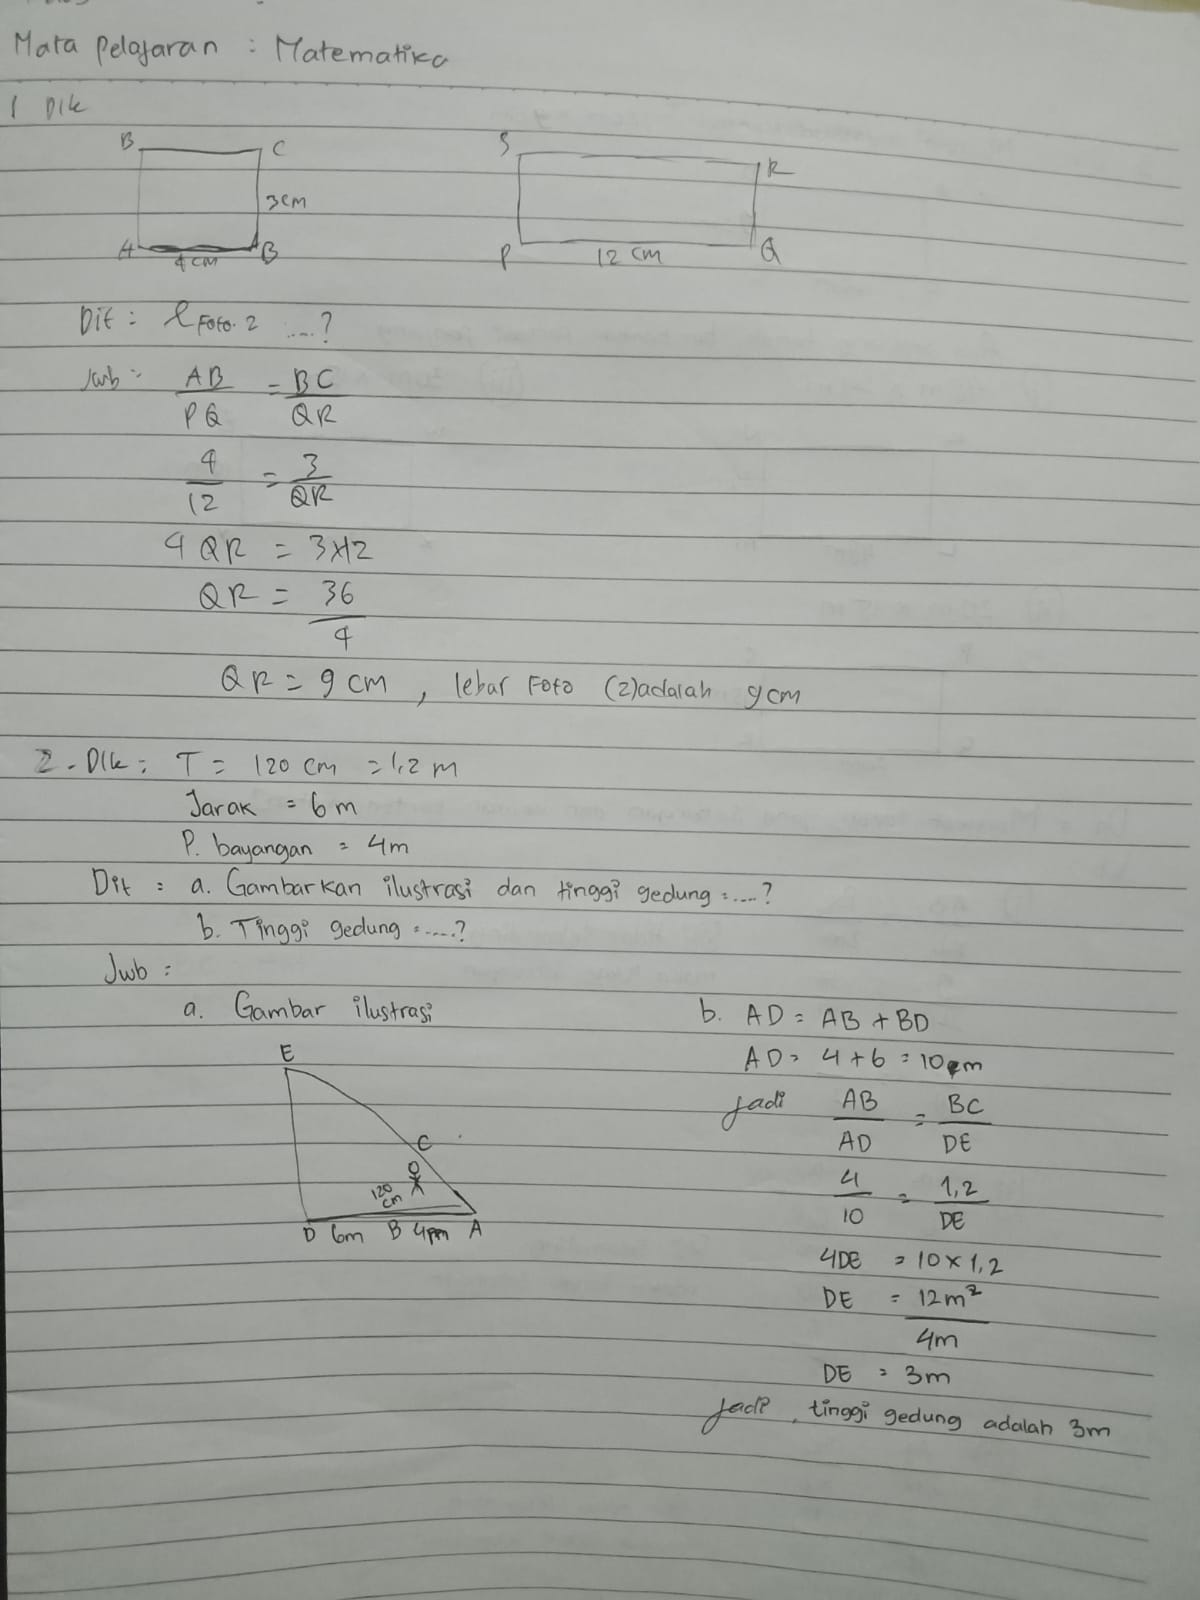 Mata Pelajaran : Matematika
1 Dik
B C S R
3cm
A 4 cm B P 12 cm Q
Dit : l Foto. 2 ....?
Jwb : AB/PQ = BC/QR
4/12 = 3/QR
4 QR = 3x12
QR = 36/4
QR = 9 cm , lebar Foto (2) adalah 9 cm
2. Dik : T = 120 cm = 1,2 m
Jarak = 6 m
P. bayangan = 4m
Dit : a. Gambarkan ilustrasi dan tinggi gedung = ....?
b. Tinggi gedung = .....?
Jwb :
a. Gambar ilustrasi
E
C
120 cm
D 6m B 4m A
b. AD = AB + BD
AD = 4 + 6 = 10 m
Jadi AB/AD = BC/DE
4/10 = 1,2/DE
4DE = 10 x 1,2
DE = 12m²/4m
DE = 3m
Jadi, tinggi gedung adalah 3m